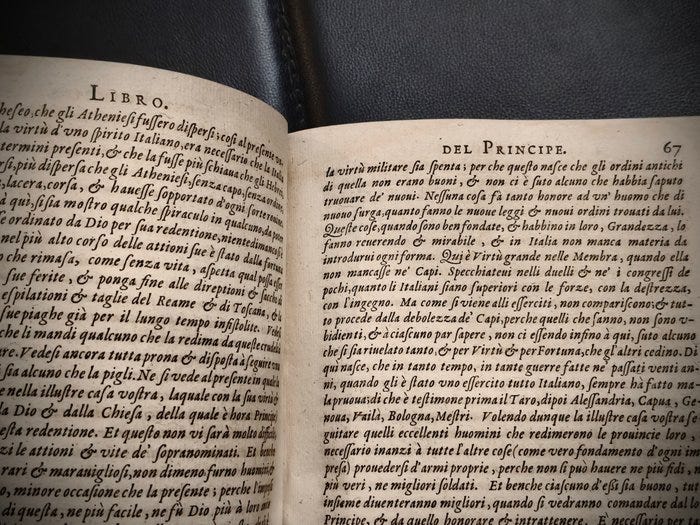 LIBRO.
heseo, che gli Atheniesi fussero dispersi; così al presente
la virtù d'vno spirito Italiano, era necessario che Italia
termini presenti, & che la fusse più schiaua che gli Hebrei,
rsi, più dispersa che gli Atheniesi, senza capo, senza ordine,
, lacera, corsa, & hauesse sopportato d'ogni sorte rouine.
à quì, si sia mostro qualche spiraculo in qualcuno, da
e ordinato da Dio per sua redentione, nientedimanco si
nel più alto corso delle attioni sue è stato dalla fortuna
o che rimasa, come senza vita, aspetta qual possa esser
sue ferite, & ponga fine alle direptioni & sacchi
espilationi & taglie del Reame & di Toscana, &
sue piaghe già per il lungo tempo infistolite. Vedesi
che li mandi qualcuno che la redima da queste crudeltà
are. Vedesi ancora tutta prona & disposta à seguire vna
si sia alcuno che la pigli. Ne si vede al presente in quale
e nella illustre casa vostra, laquale con la sua virtù &
a Dio & dalla Chiesa, della quale è hora Principe)
esta redentione. Et questo non vi sarà molto difficile,
zi le attioni & vite de' sopranomati. Et benche
rari & marauigliosi, non dimeno furno huomini,
o, minore occasione che la presente; perche l'impresa
di questa, ne più facile, ne fù Dio più à loro
DEL PRINCIPE. 67
la virtù militare sia spenta; per che questo nasce che gli ordini antichi
di quella non erano buoni, & non ci è suto alcuno che habbia saputo
trouare de' nuoui. Nessuna cosa fà tanto honore ad vn' huomo che di
nuouo surga, quanto fanno le nuoue leggi & nuoui ordini trouati da lui.
Queste cose, quando sono ben fondate, & habbino in loro, Grandezza, lo
fanno reuerendo & mirabile, & in Italia non manca materia da
introdurui ogni forma. Quì è Virtù grande nelle Membra, quando ella
non mancasse ne' Capi. Specchiateui nelli duelli & ne' i congressi de
pochi, quanto li Italiani siano superiori con le forze, con la destrezza,
con l'ingegno. Ma come si viene alli esserciti, non compariscono; & tut-
to procede dalla debolezza de' Capi, perche quelli che sanno, non sono v-
bidienti, & à ciascuno par sapere, non ci essendo infino à quì, suto alcuno
che si sia riuelato tanto, & per Virtù & per Fortuna, che gl'altri cedino. Di
quì nasce, che in tanto tempo, in tante guerre fatte ne' passati venti an-
ni, quando gli è stato vno essercito tutto Italiano, sempre hà fatto ma
la pruoua; di che è testimone prima il Taro, dipoi Alessandria, Capua, Ge-
noua, Vailà, Bologna, Mestri. Volendo dunque la illustre casa vostra se
guitare quelli eccellenti huomini che redimerono le prouincie loro,
necessario inanzi à tutte l'altre cose (come vero fondamento d'ogni im
presa) prouedersi d'armi proprie, perche non si può hauere ne più fidi, n
più veri, ne migliori soldati. Et benche ciascuno d'essi sia buono, tut
insiame diuenteranno migliori, quando si vedranno comandare dal l
Principe, & da quello honorare & intrattenere. È necessario per